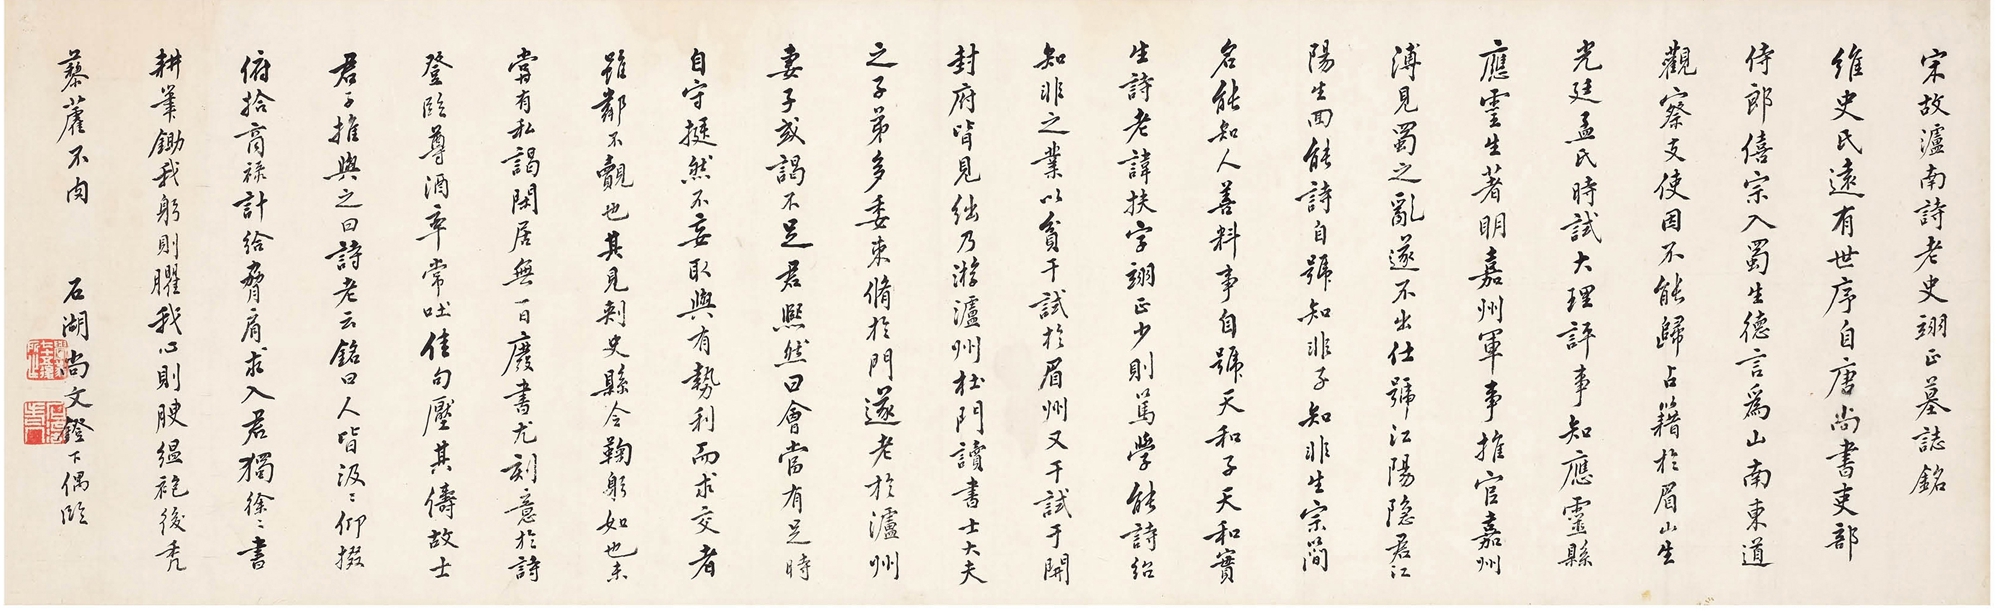 宋故瀘南詩老史翊正墓誌銘
維史氏遠有世序自唐尚書吏部
侍郎僖宗入蜀生德言為山南東道
觀察支使因不能歸占籍於眉山生
光廷孟氏時試大理評事知應靈縣
應靈生著明嘉州軍事推官嘉州
溥見蜀之亂遂不出仕號江陽隐君江
陽生回能詩自號知非子知非生宗簡
名能知人善料事自號天和子天和實
生詩老諱扶字翊正少則篤學能詩紹
知非之業以貧干試於眉州又干試于開
封府皆見絀乃游瀘州杜門讀書士大夫
之子弟多委束脩於門遂老於瀘州
妻子或謁不足君熙然曰會當有足時
自守挺然不妄取與有勢利而求交者
雖鄰不覿也其見刺史縣令鞠躬如也未
嘗有私謁閑居無一日廢書尤刻意於詩
登臨尊酒率常吐佳句壓其儔故士
君子推與之曰詩老云銘曰人皆汲〻仰掇
俯拾高祿計給脅肩求入君獨徐〻書
耕筆鋤我躬則臞我心則腴緼袍後禿
藜藿不肉
石湖尚文鐙下偶臨